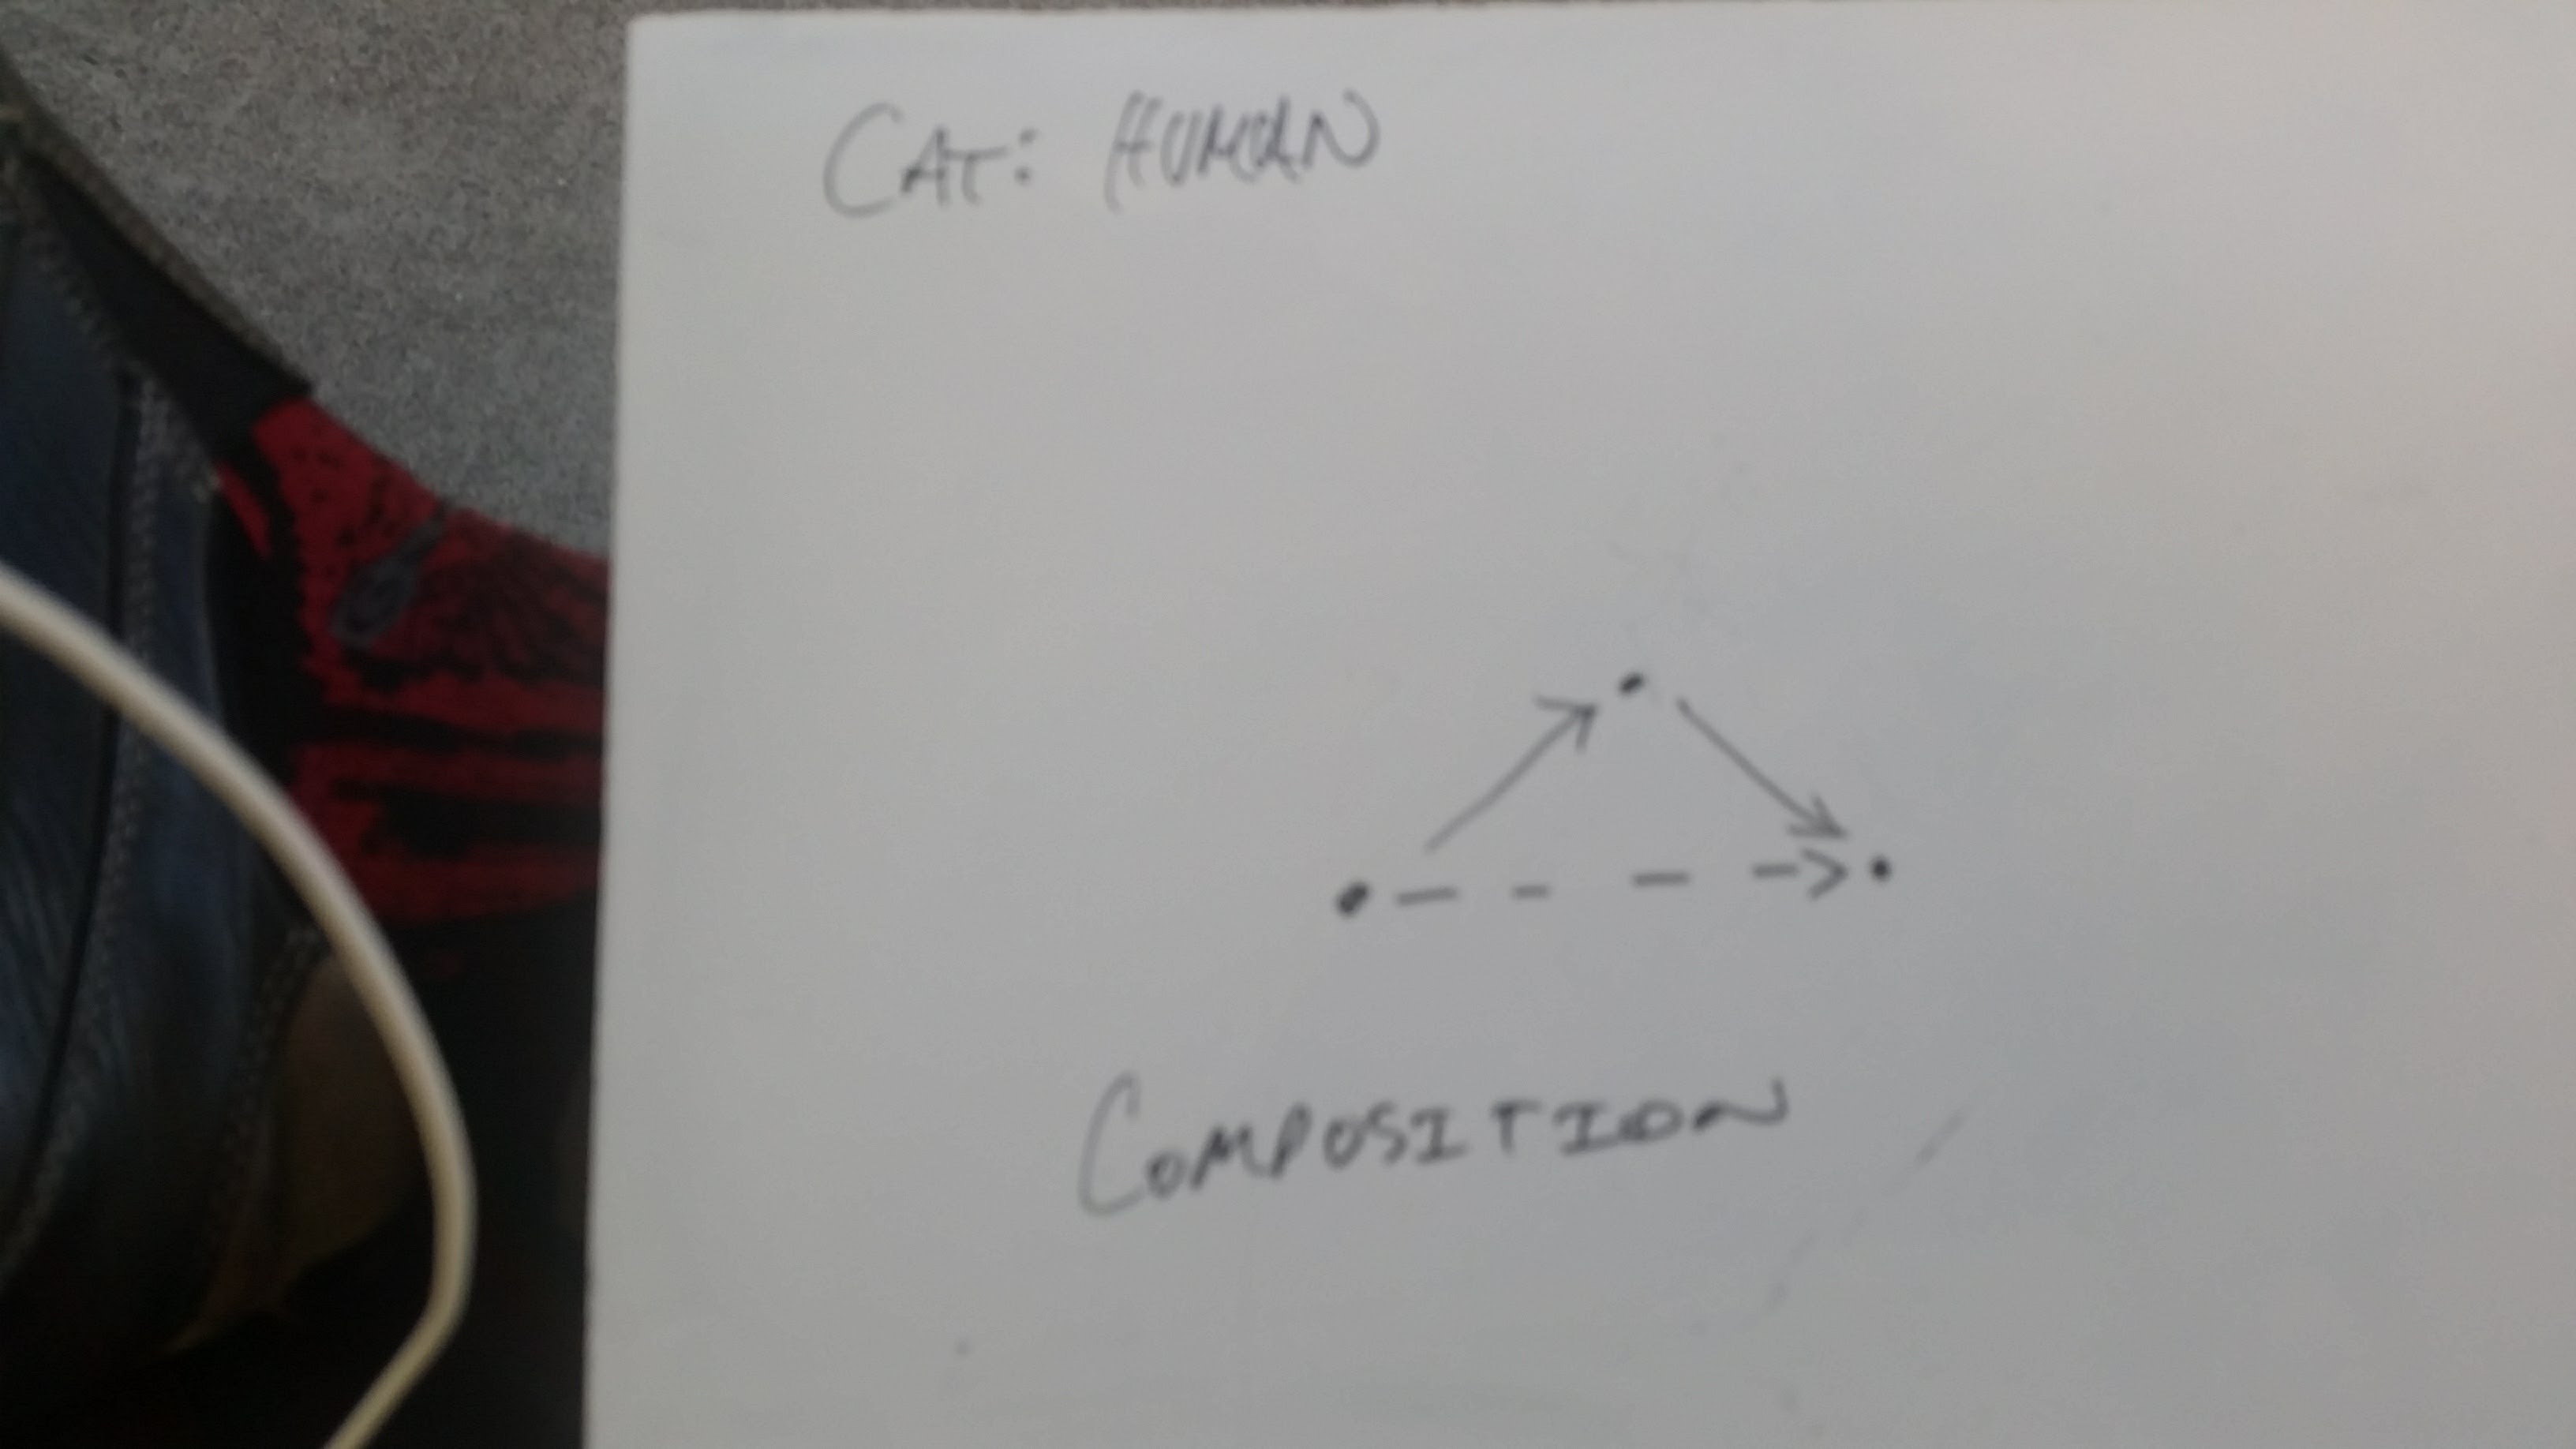 CAT: HUMAN
COMPOSITION